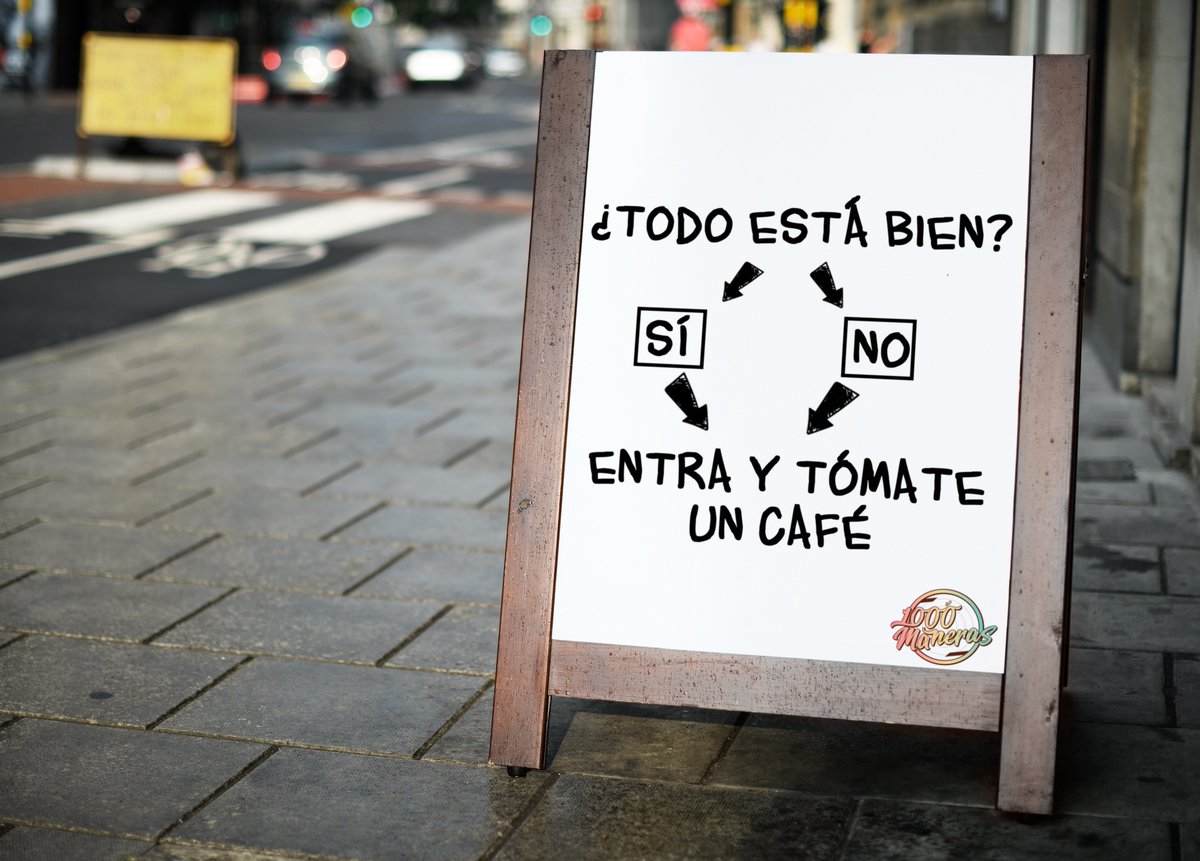 ¿TODO ESTÁ BIEN?
SÍ
NO
ENTRA Y TÓMATE
UN CAFÉ
1000
Maneras